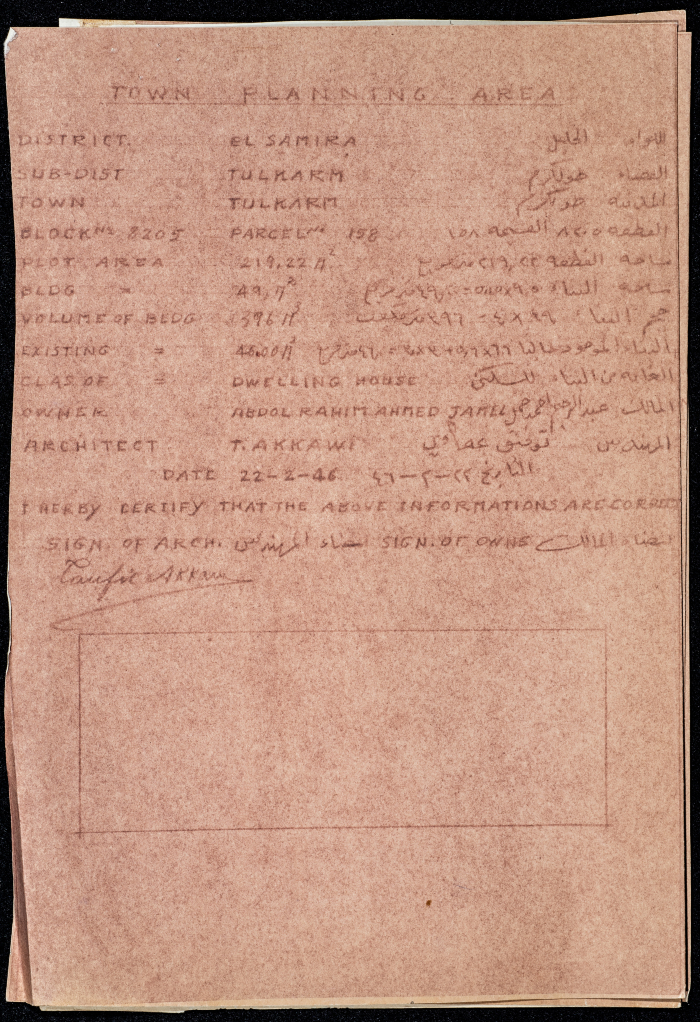 TOWN PLANNING AREA
DISTRICT EL SAMIRA اللواء
SUB-DIST TULKARM القضاء طولكرم
TOWN TULKARM المدينة طولكرم
BLOCK No 8205 PARCEL No 158 القطعة ٨٢٠٥ القسيمة ١٥٨
PLOT AREA 219,22 M² مساحة القطعة ٢١٩,٢٢ متر مربع
BLDG = 49,M² مساحة البناء
VOLUME OF BLDG 396 M³ حجم البناء
EXISTING = 46.00 M² البناء الموجود حاليا
CLAS OF = DWELLING HOUSE الغاية من البناء للسكن
OWNER ABDOL RAHIM AHMED JAMEL المالك عبد الرحيم احمد جمل
ARCHITECT T. AKKAWI المهندس توفيق عكاوي
DATE 22-2-46 التاريخ ٢٢-٢-٤٦
I HERBY CERTIFY THAT THE ABOVE INFORMATIONS ARE CORRECT
SIGN. OF ARCH. امضاء المهندس SIGN. OF OWNE امضاء المالك
Taufic Akkawi